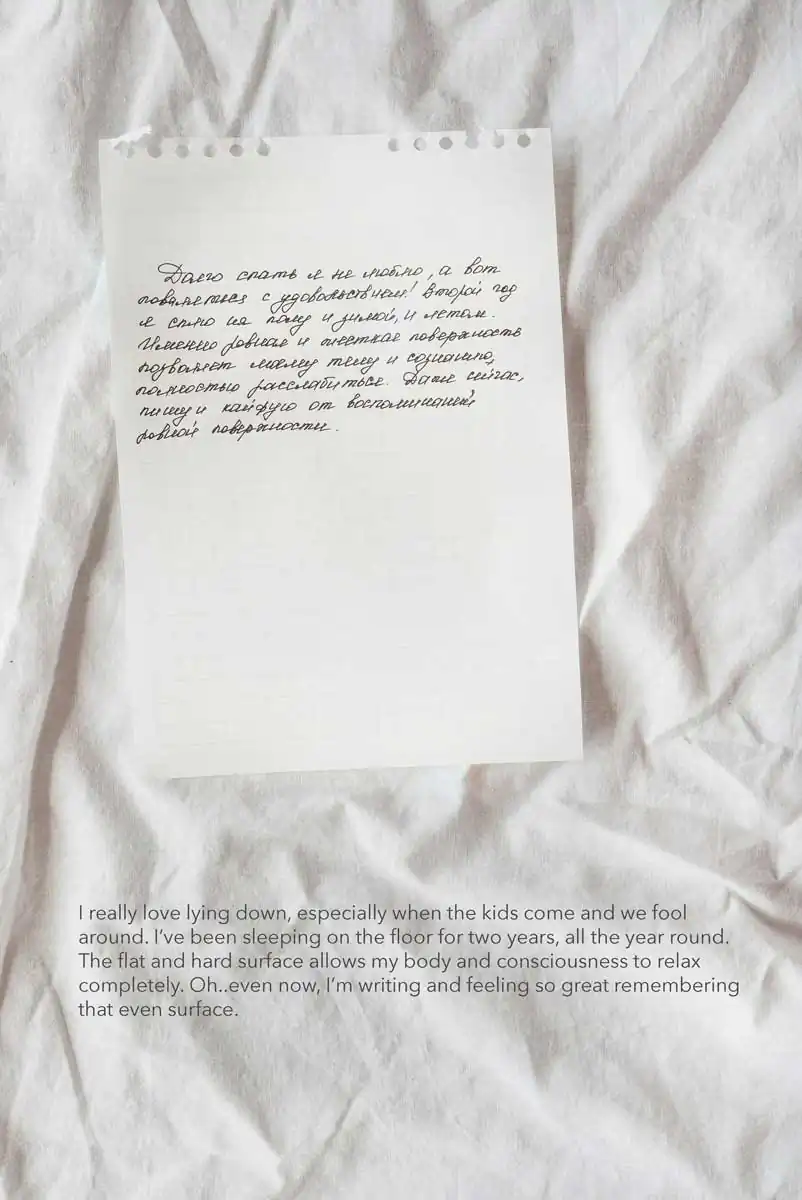 Долго спать я не люблю, а вот
поваляться с удовольствием! Второй год
я сплю на полу и зимой, и летом.
Именно ровная и жесткая поверхность
позволяет моему телу и сознанию,
полностью расслабиться. Даже сейчас,
пишу и кайфую от воспоминаний
ровной поверхности.
I really love lying down, especially when the kids come and we fool
around. I've been sleeping on the floor for two years, all the year round.
The flat and hard surface allows my body and consciousness to relax
completely. Oh..even now, I'm writing and feeling so great remembering
that even surface.